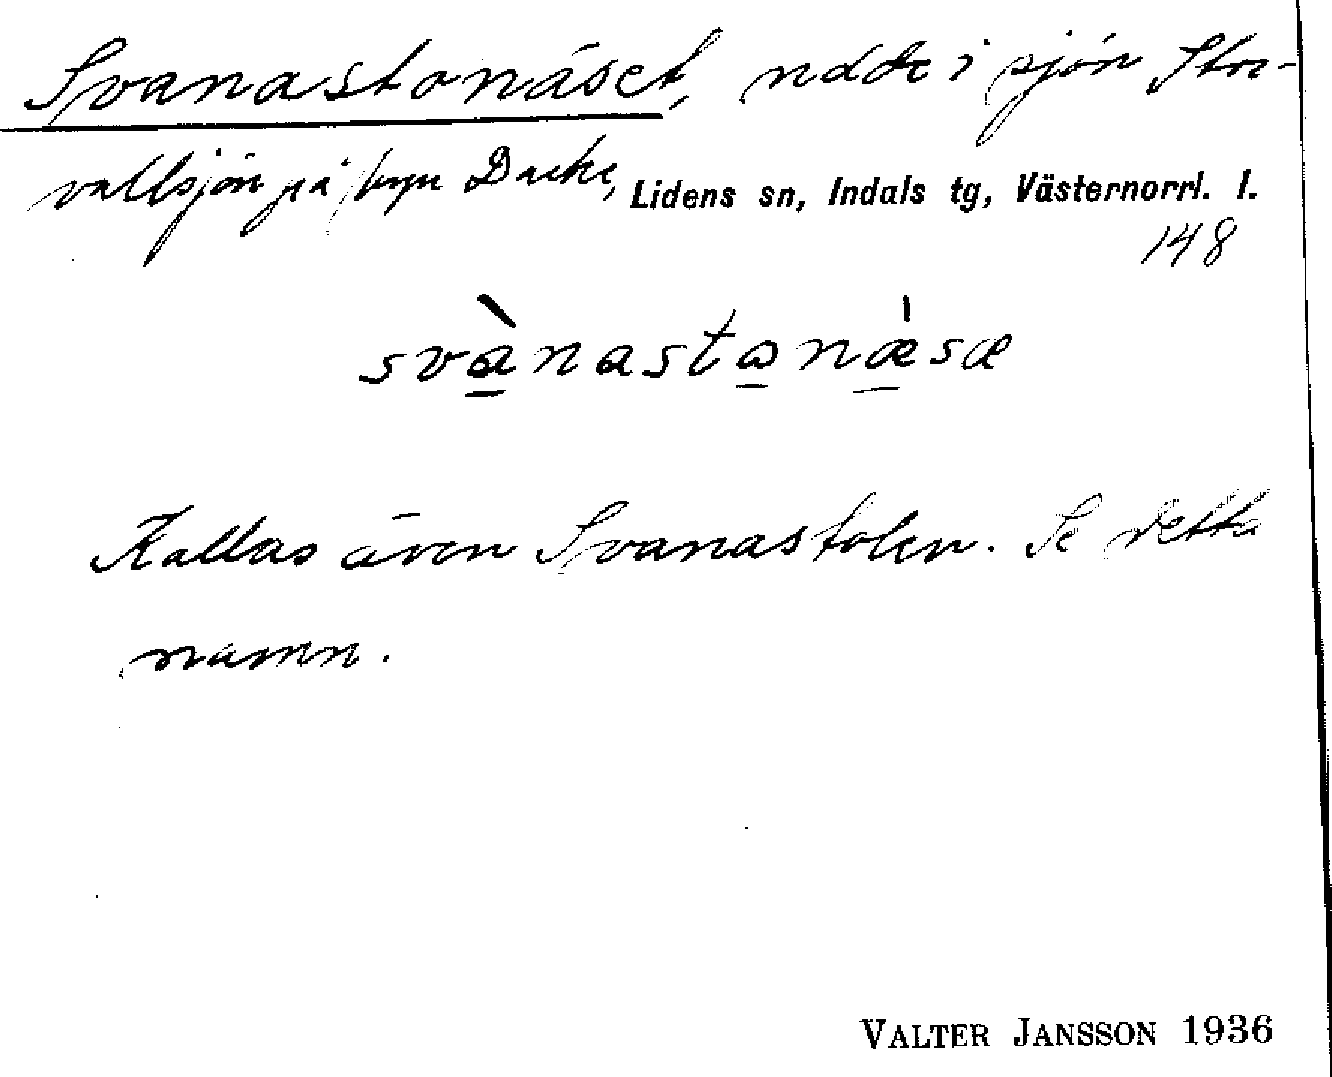 Svanastonäset, udde i sjön Stor-
vallsjön på byn Backe, Lidens sn, Indals tg, Västernorrl. l.
148
svànastonæ̀sæ
Kallas även Svanastolen. Se detta
namn.
VALTER JANSSON 1936